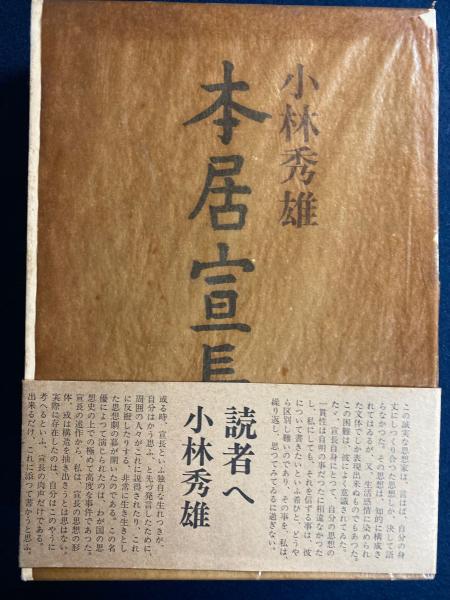 小林秀雄
本居宣長
この誠実な思想家は、言はば、自分の身
丈に、しつくり合つた思想しか、決して語
らなかつた。その思想は、知的に構成さ
れてはゐるが、又、生活感情に染められ
た文体でしか表現出来ぬものでもあつた。
この困難は、彼によく意識されてゐた。
だが、宣長自身にとつて、自分の思想の
一貫性は自明の事だつたに相違なかつた
し、私にしても、それを信ずる事は、彼
について書きたいといふ希ひと、どうや
ら区別し難いのであり、その事を、私は、
繰り返し、思つてみてゐるに過ぎない。
読者へ
小林秀雄
或る時、宣長といふ独自な生れつきが、
自分はかう思ふ、と先づ発言したために、
周囲の人々がこれに説得されたり、これ
に反撥したりする、非常に生き生きとし
た思想の幕が開いたのである。この名
優によつて演じられたのは、わが国の思
想史の上での極めて高度な事件であつた。
宣長の述作から、私は、宣長の思想の形
体、或は構造を抽き出さうとは思はない。
実際に存在したのは、自分はこのやうに
考へるといふ、宣長の肉声だけである。
出来るだけ、これに添つて書かうと思ふ。